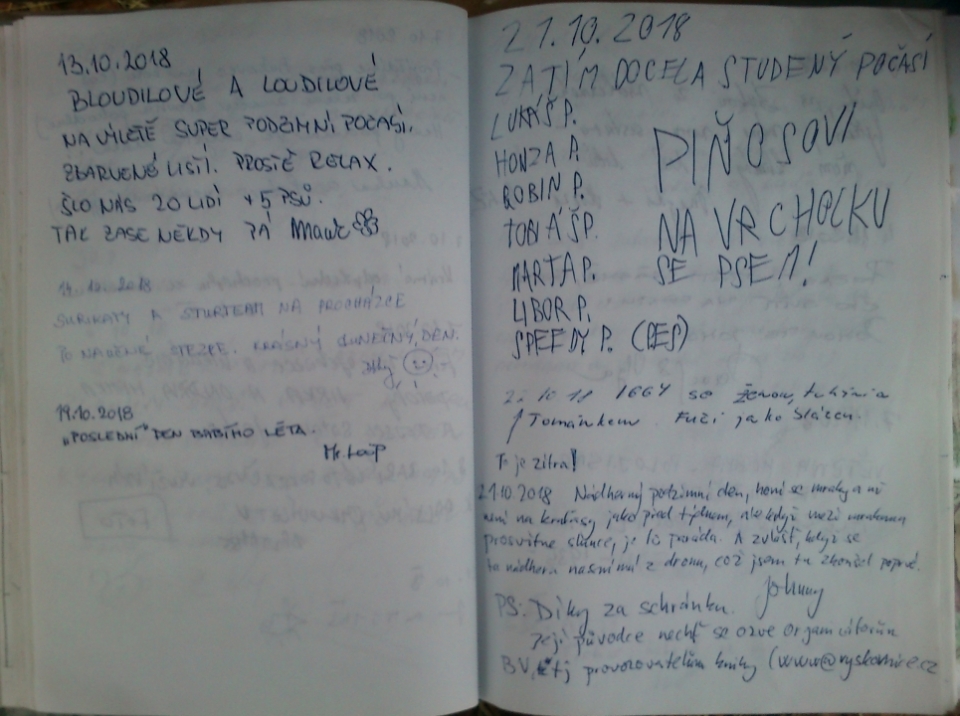 13.10.2018
BLOUDILOVÉ A LOUDILOVÉ
NA VÝLETĚ SUPER PODZIMNÍ POČASÍ,
ZBARVENÉ LISTÍ. PROSTĚ RELAX.
ŠLO NÁS 20 LIDÍ + 5 PSŮ.
TAK ZASE NĚKDY PÁ
14.10.2018
SURIKATY A STURTEAM NA PROCHÁZCE
PO NAUČNÉ STEZCE. KRÁSNÝ SLUNEČNÝ DEN.
19.10.2018
„POSLEDNÍ" DEN BABÍHO LÉTA.
21.10.2018
ZATÍM DOCELA STUDENÝ POČASÍ
LUKÁŠ P.
HONZA P.
ROBIN P.
TOBIÁŠ P.
MARTA P.
LIBOR P.
SPEEDY P. (PES)
PIŇOSOVI
NA VRCHOLKU
SE PSEM!
22 10 18 1664 se ženou,
Tománkem Fučí jako
To je zítra!
21.10.2018 Nádherný podzimní den, honí se mraky a už
není na kraťasy jako před týdnem, ale když mezi mrakama
prosvitne slunce, je to paráda. A zvlášť, když se
ta nádhera nasnímá z dronu, což jsem tu zkoušel poprvé.
Johnny
PS: Díky za schránku.
Její původce nechť se ozve organizátorům
BV, tj provozovatelům knihy (www@ryskovnice.cz